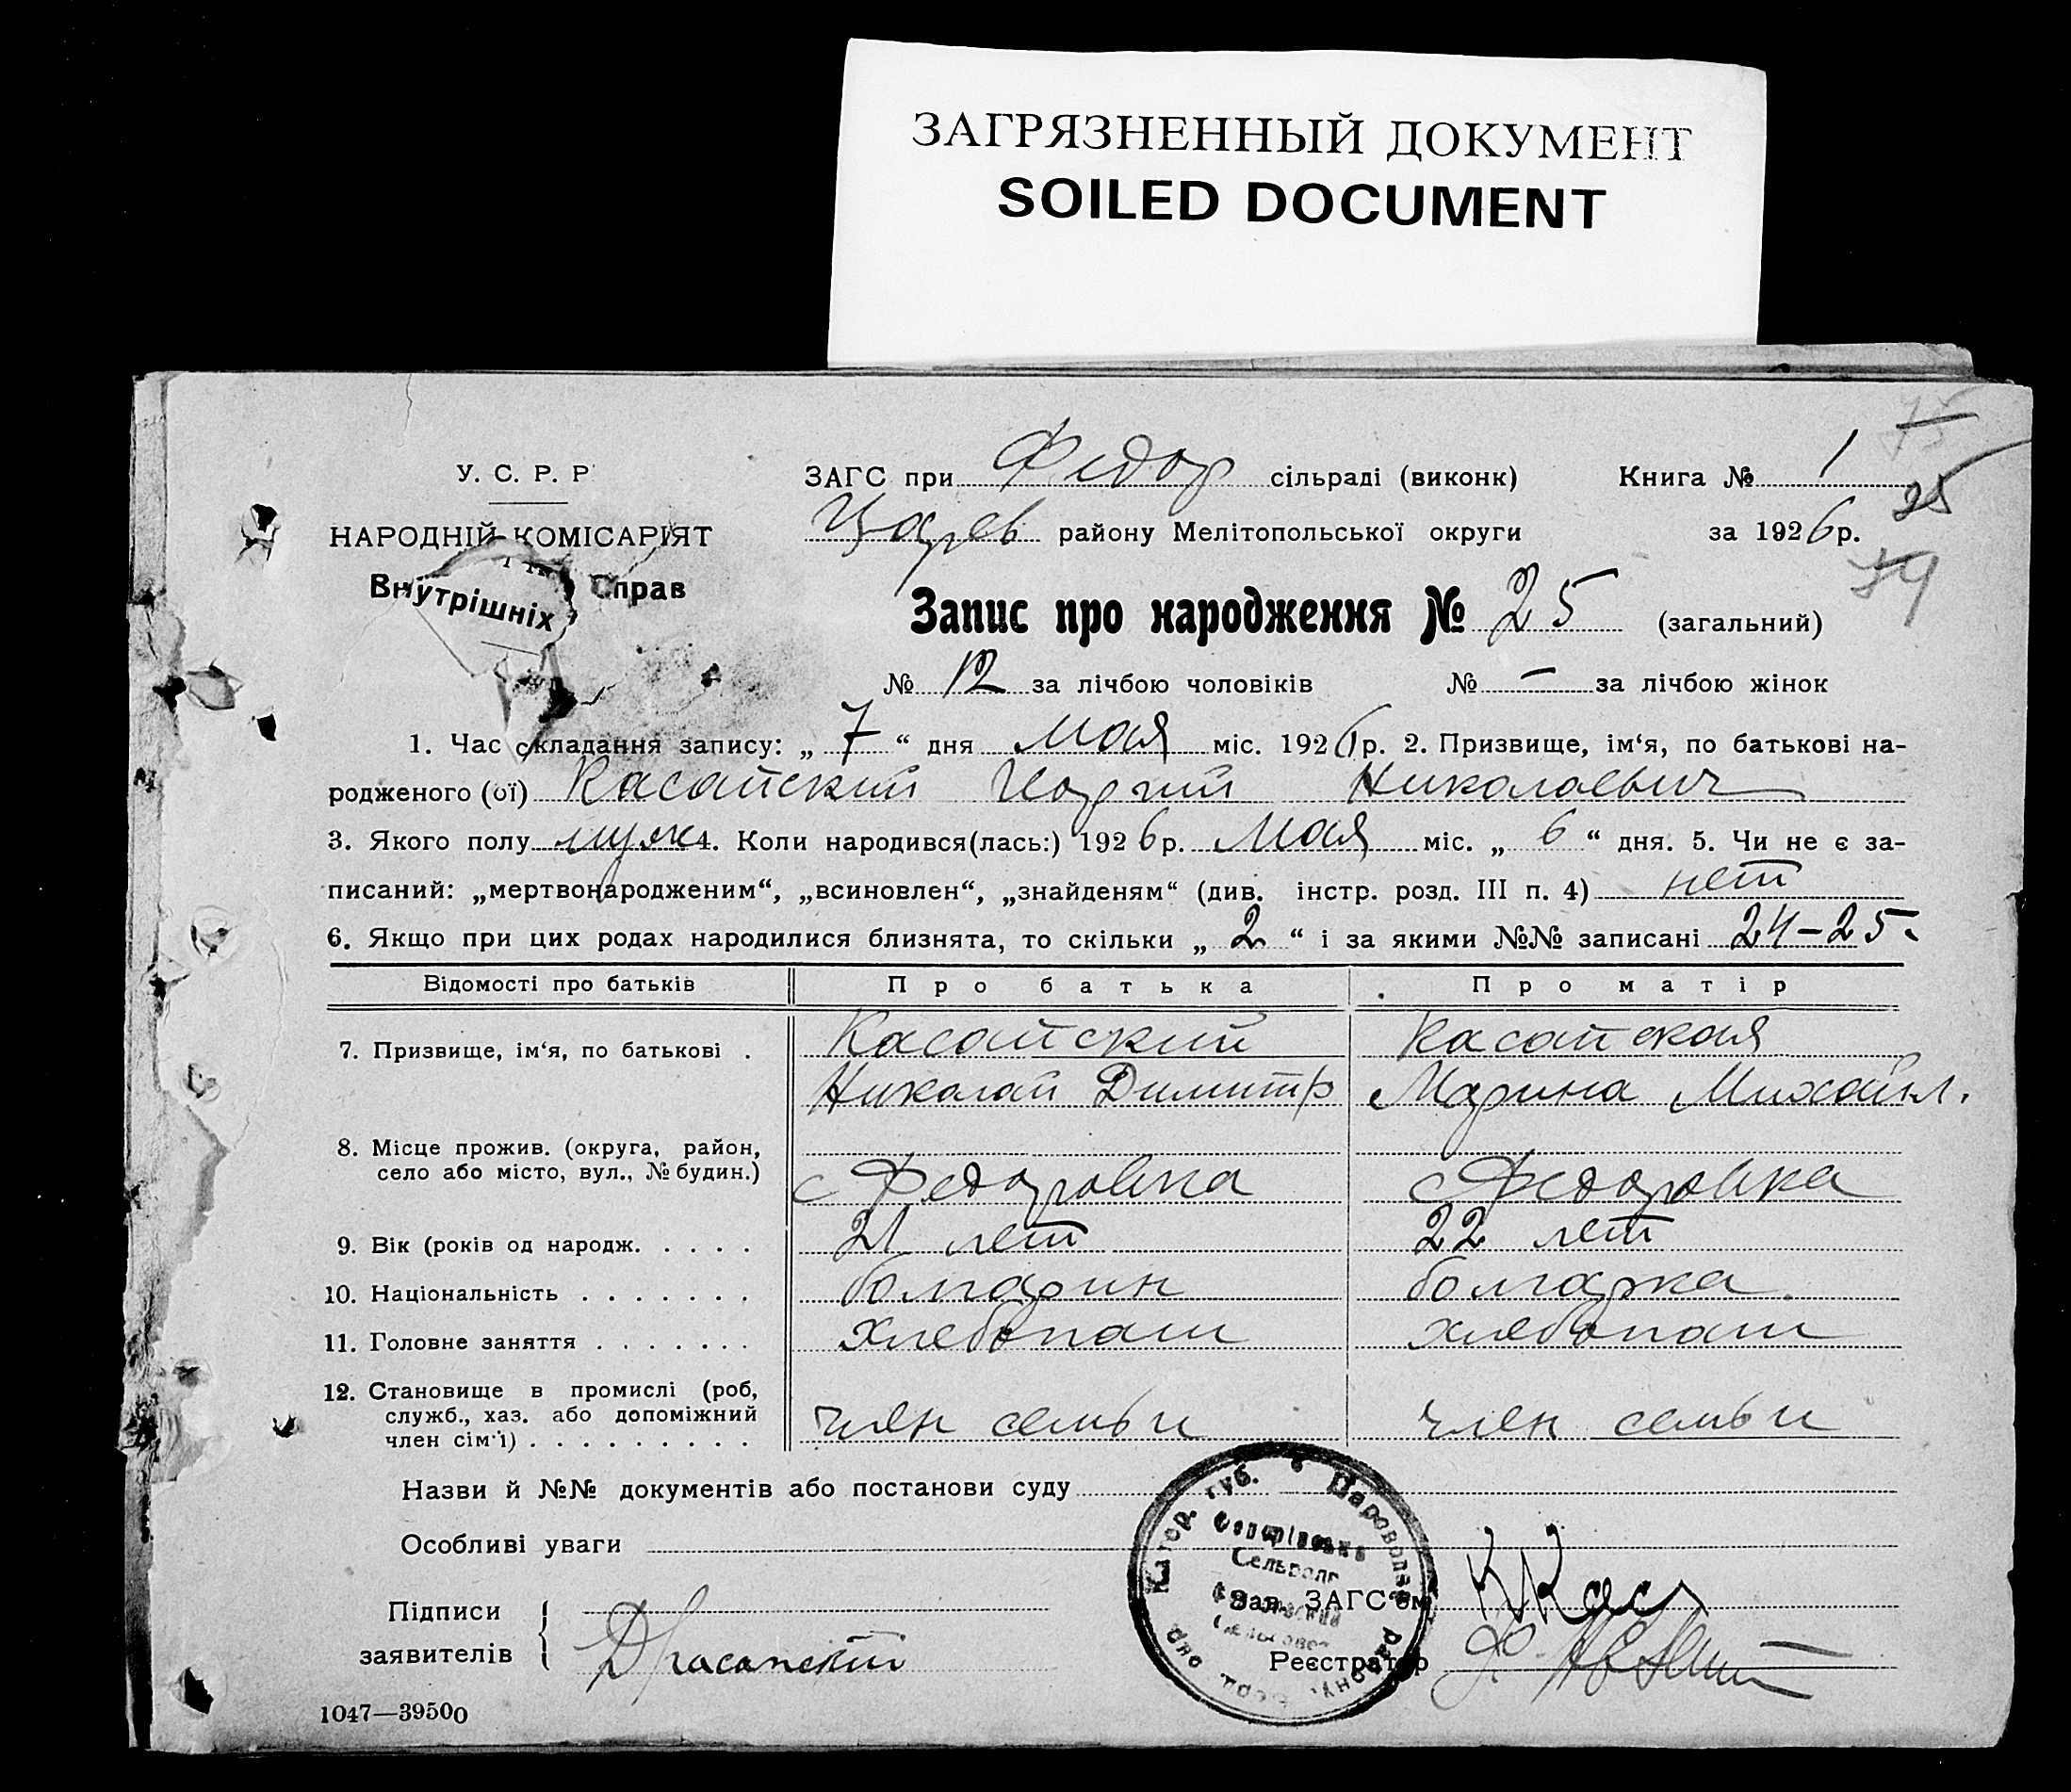 ЗАГРЯЗНЕННЫЙ ДОКУМЕНТ
SOILED DOCUMENT
75
У. С. Р. Р
ЗАГС при Федор сільраді (виконк) Книга № 1
25
НАРОДНІЙ КОМІСАРІЯТ
Царев району Мелітопольської округи за 1926р.
Внутрішніх Справ
79
Запис про народження № 25 (загальний)
№ 12 за лічбою чоловіків № — за лічбою жінок
1. Час складання запису: „ 7 “ дня мая міс. 1926р. 2. Призвище, ім‘я, по батькові на-
родженого (ої) Касапский Георгий Николаевич
3. Якого полу муж 4. Коли народився(лась:) 1926р. Мая міс. „ 6 “ дня. 5. Чи не є за-
писаний: „мертвонародженим“, „всиновлен“, „знайденям“ (див. інстр. розд. III п. 4) нет
6. Якщо при цих родах народилися близнята, то скільки „ 2 “ і за якими №№ записані 24-25.
Відомості про батьків Про батька Про матір
7. Призвище, ім‘я, по батькові . Касапский Касапская
Николай Димитр Марина Михайл.
8. Місце прожив. (округа, район,
село або місто, вул., № будин.) с Федоровка с Федоровка
9. Вік (років од народж. . . . . 21 лет 22 лет
10. Національність . . . . . . . болгарин болгарка
11. Головне заняття . . . . . . . хлебопаш хлебопаш
12. Становище в промислі (роб,
служб., хаз. або допоміжний
член сім‘ї) . . . . . . . . . член семьи член семьи
Назви й №№ документів або постанови суду
Особливі уваги
Підписи
Зав. ЗАГС‘ом
заявителів
Д Касапский
Реєстратор
1047—39500